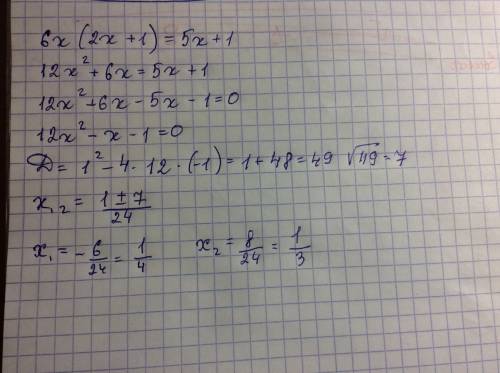 6x (2x + 1) = 5x + 1
12x² + 6x = 5x + 1
12x² + 6x - 5x - 1 = 0
12x² - x - 1 = 0
D = 1² - 4 · 12 · (-1) = 1 + 48 = 49 √49 = 7
x₁,₂ = (1 ± 7)/24
x₁ = -6/24 = 1/4 x₂ = 8/24 = 1/3